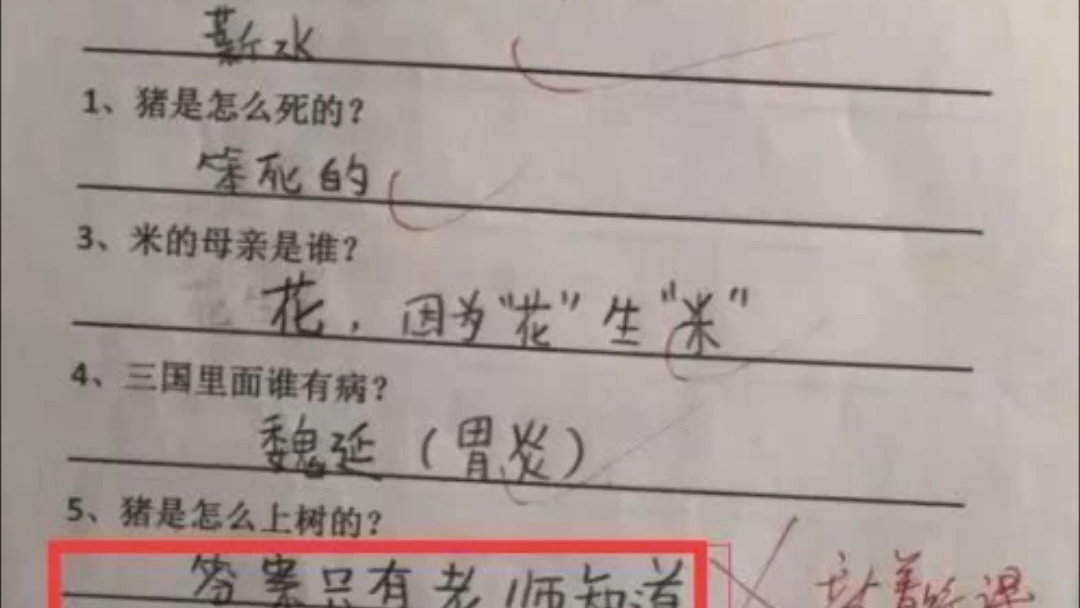 薪水
1、猪是怎么死的？
笨死的
3、米的母亲是谁？
花，因为“花”生“米”
4、三国里面谁有病？
魏延（胃炎）
5、猪是怎么上树的？
答案只有老师知道